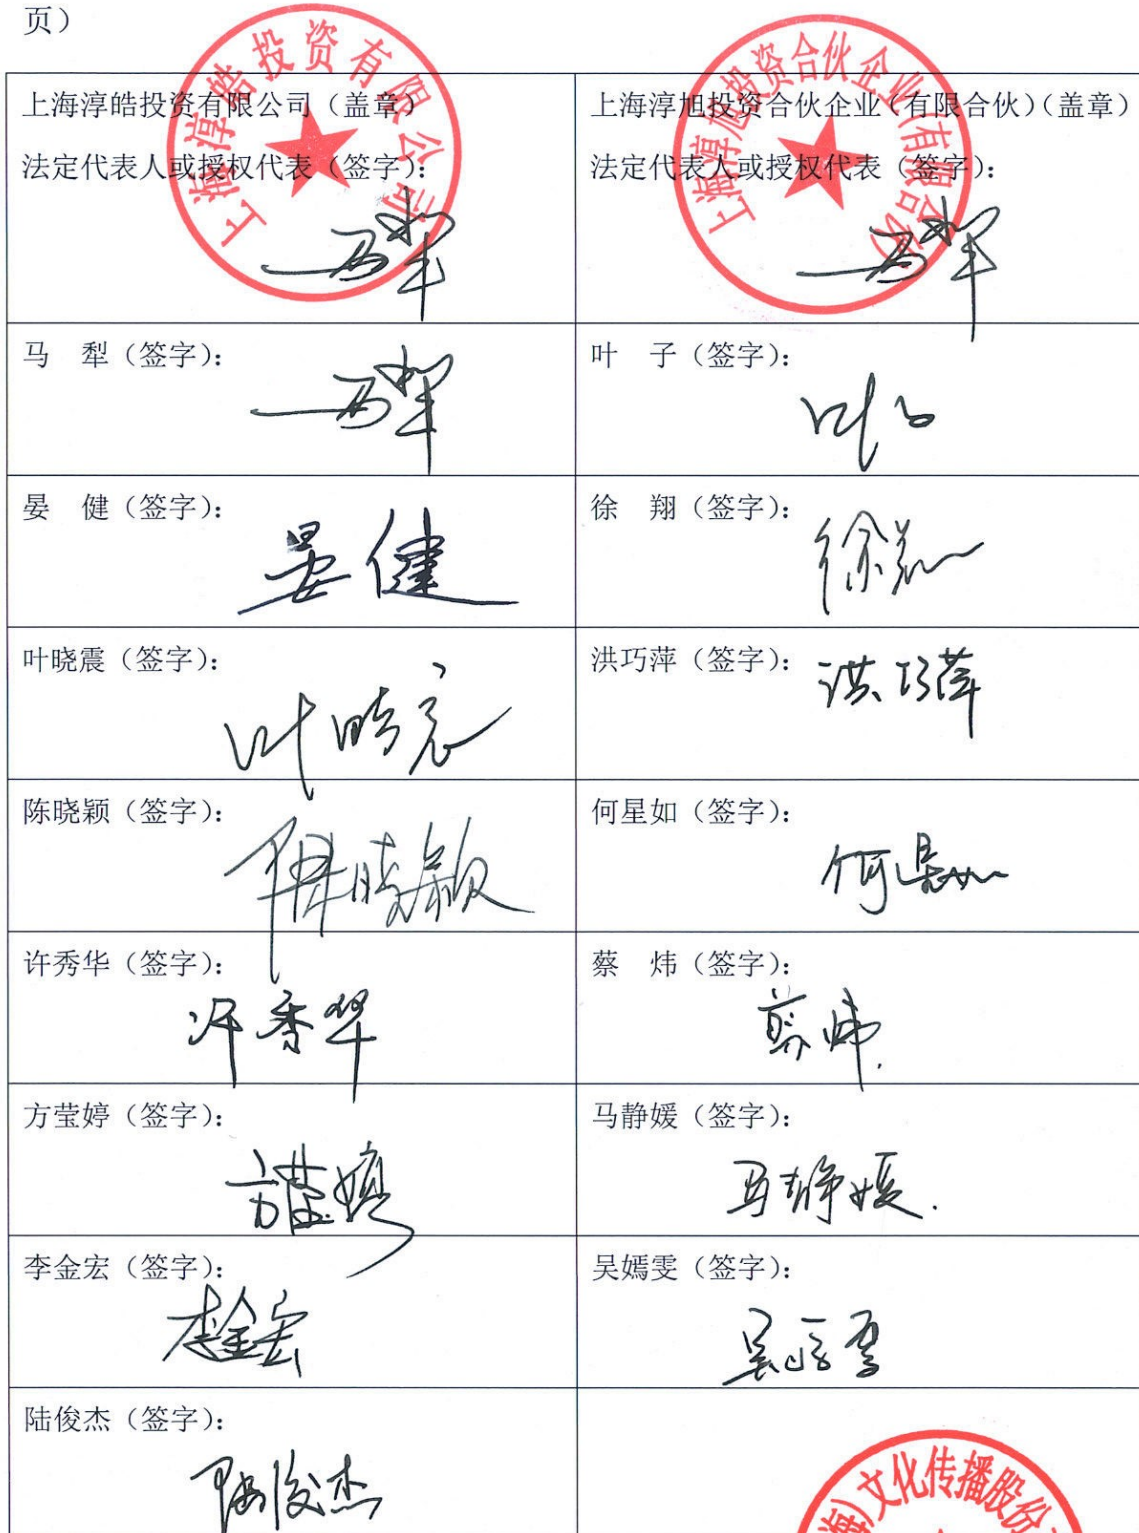 页）
上海淳皓投资有限公司（盖章）
法定代表人或授权代表（签字）：
上海淳皓投资有限公司
马犁
上海淳旭投资合伙企业（有限合伙）（盖章）
法定代表人或授权代表（签字）：
上海淳旭投资合伙企业(有限合伙)
马犁
马　犁（签字）：
马犁
叶　子（签字）：
叶子
晏　健（签字）：
晏健
徐　翔（签字）：
徐翔
叶晓震（签字）：
叶晓震
洪巧萍（签字）：
洪巧萍
陈晓颖（签字）：
陈晓颖
何星如（签字）：
何星如
许秀华（签字）：
许秀华
蔡　炜（签字）：
蔡炜
方莹婷（签字）：
方莹婷
马静媛（签字）：
马静媛
李金宏（签字）：
李金宏
吴嫣雯（签字）：
吴嫣雯
陆俊杰（签字）：
陆俊杰
海)文化传播股份